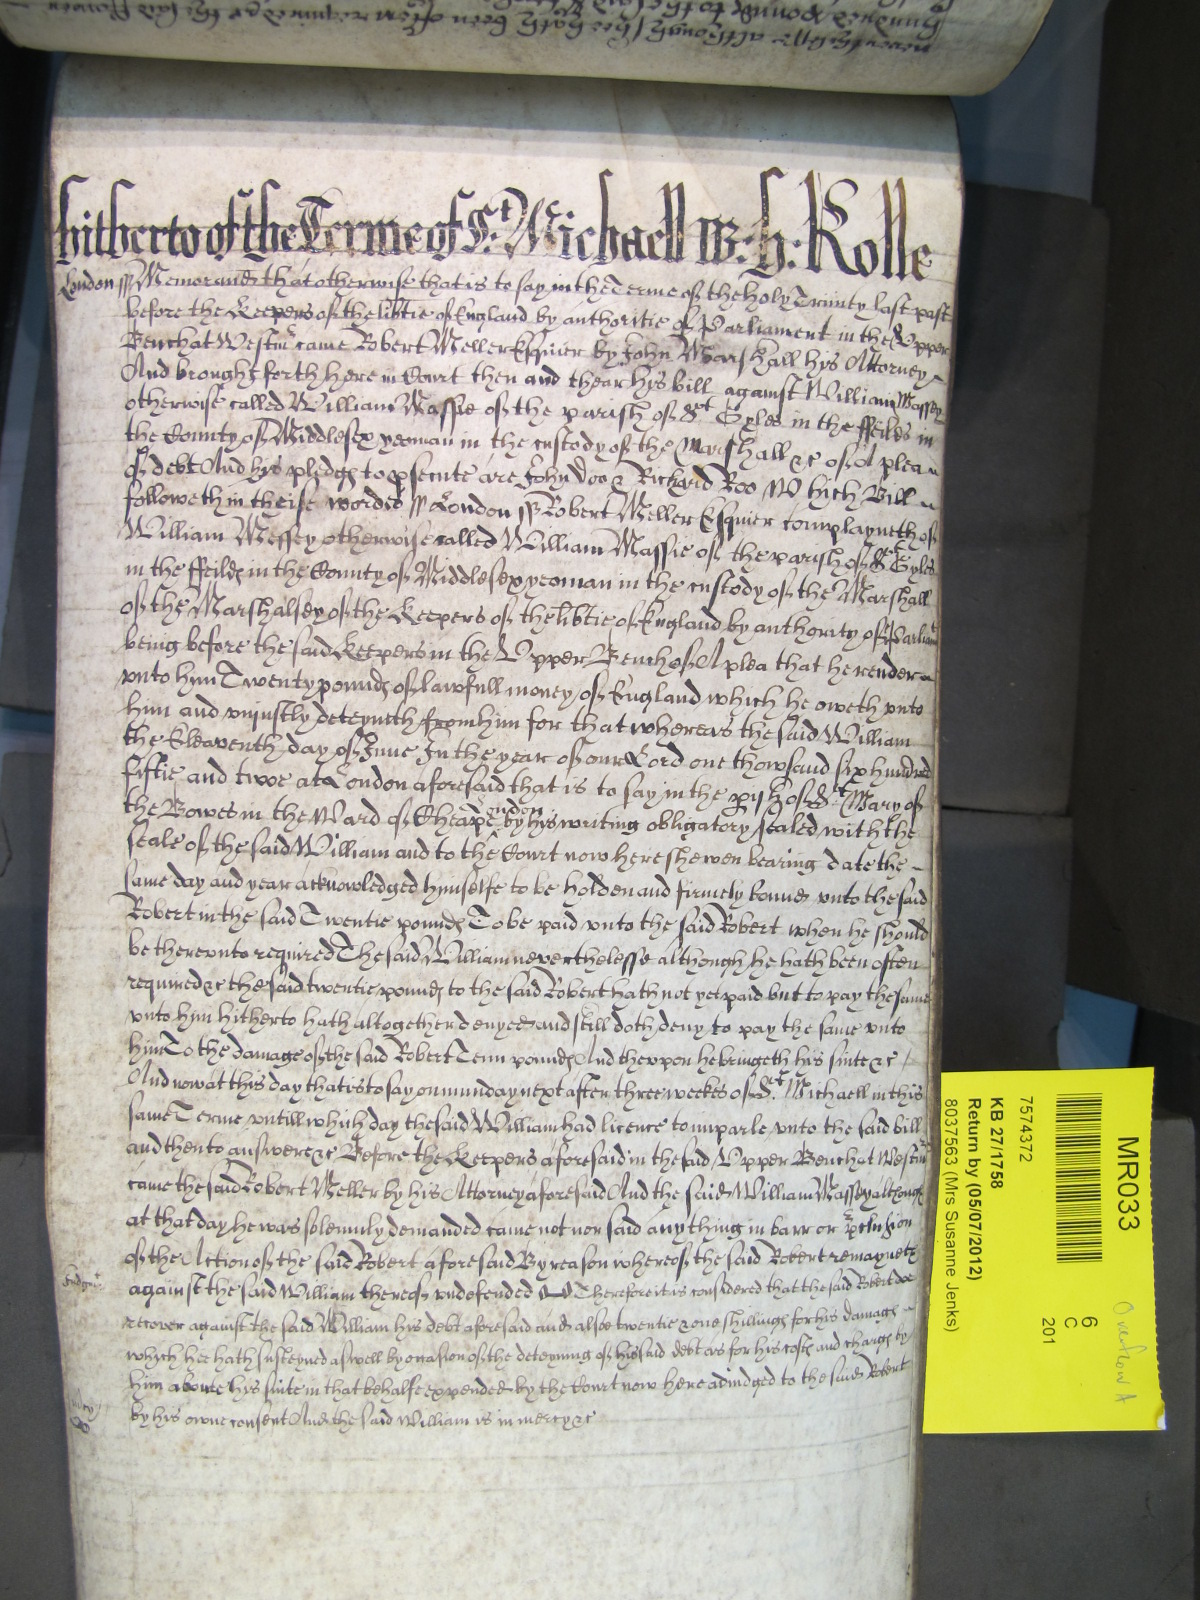 neverthelesse although hee hath been often required &c the said
hitherto of the Terme of St. Michaell W: h: Rolle
London ss Memorand that otherwise that is to say in the Terme of the holy Trinity last past
before the Keepers of the libtie of England by authoritie of Parliament in the Upper
Bench at Westm came Robert Meller Esquier by John Marshall hys Attorney
And brought forth here in Court then and thear hys bill against William Massey
otherwise called William Massie of the parish of St Gyles in the ffeilds in
the County of Middlesex yeoman in the custody of the Marshall &c of A plea
of debt And his pledg to psecute are John Doo & Richard Roo Which Bill
followeth in theise wordes ss London ss Robert Meller Esquier complayneth of
William Messey otherwise called William Massie of the parish of St Gyles
in the ffeild in the County of Middlesex yeoman in the custody of the Marshall
of the Marshalsey of the Keepers of the libtie of England by authority of Parliam
being before the said Keepers in the Upper Bench of A plea that he render
vnto him Twenty pound of lawfull money of England which he oweth vnto
him and vniustly deteyneth from him for that whereas the said William
the Eleaventh day of June In the year of our Lord one thowsand six hundred
fiftie and twoe at London aforesaid that is to say in the pish of St Mary of
the Bowes in the Ward of Cheape London by his writing obligatory sealed with the
seale of the said William and to the Court now here shewen bearing date the
same day and year acknowledged himselfe to be holden and firmely bound vnto the said
Robert in the said Twentie pound To be paid vnto the said Robert when he should
be therevnto required The said William neverthelesse although he hath been often
required &c the said twentie pound to the said Robert hath not yet paid but to pay the same
vnto him hitherto hath altogether denyed and still doth deny to pay the same vnto
him To the damage of the said Robert Tenn pound And thervpon he bringeth his suite &c
And now at this day that is to say on munday next after three weekes of St. Michaell in this
same Terme vntill which day the said William had licence to imparle vnto the said bill
and then to answere &c Before the Keepers aforesaid in the said Upper Bench at Westm
came the said Robert Meller by his Attorney aforesaid And the said William Massey although
at that day he was solemnly demanded came not nor said any thing in barr or pclusion
of the Action of the said Robert aforesaid By reason whereof the said Robert remayneth
Judgmt
against the said William thereof vndefended Therefore it is considered that the said Robert doe
recover against the said William hys debt aforesaid and alsoe twentie & one shilling for his damag
which hee hath susteyned aswell by occasion of the deteyning of his said debt as for his cost and charg by
him aboute his suite in that behalfe expended by the Court now here adiudged to the said Robert
mcy
by his owne consent And the said William is in mercy &c
MR033
7574372
KB 27/1758
Return by (05/07/2012)
8037563 (Mrs Susanne Jenks)
6
C
201
Overflow A